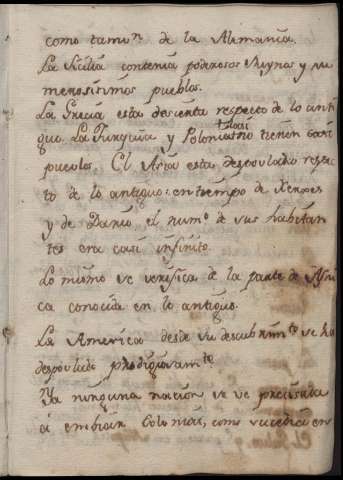 como tamn. de la Alimania.
La Sicilia contenia poderosos Reynos y nu
merosisimos pueblos.
La Grecia esta desierta respecto de lo anti
guo. La Turquia y Polonia no tienen casi
pueblos. El Asia esta despoblada respec
to de lo antiguo: en tiempo de Xerxes
y de Dario el numo. de sus habitan
tes era casi infinito.
Lo mismo se verifica de la parte de Afri
ca conocida en lo antiguo.
La America desde su descubrimto. se ha
despoblado prodigiosamte.
Ya ninguna nacion se ve precisada
á embiar Colonias, como sucedia en